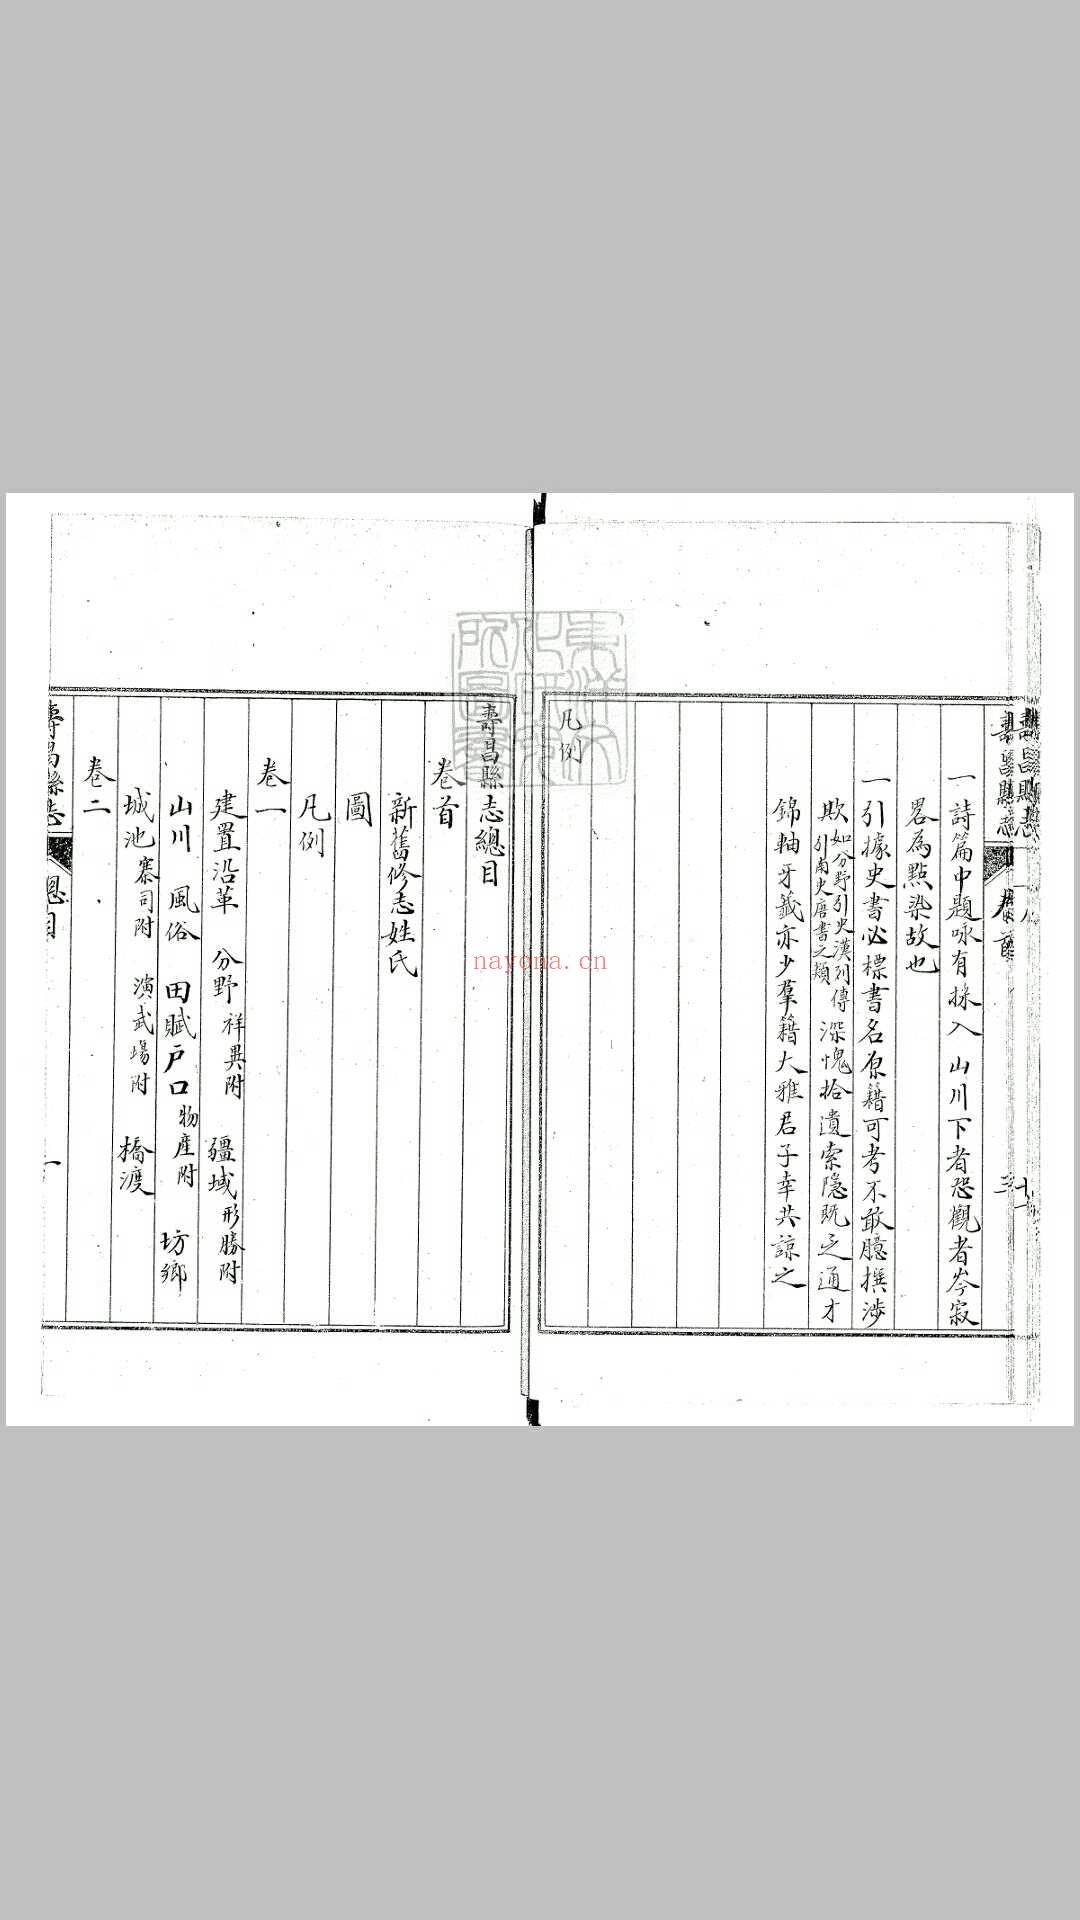 壽昌縣志
卷首
一詩篇中題咏有採入 山川下者恐觀者岑寂
畧為點染故也
一引據史書必標書名原籍可考不敢臆撰涉
欺如分野引史漢列傳引南史唐書之類深愧拾遺索隱既乏通才
錦軸牙籤亦少羣籍大雅君子幸共諒之
凡例
壽昌縣志總目
卷首
新舊修志姓氏
圖
凡例
卷一
建置沿革 分野祥異附 疆域形勝附
山川 風俗 田賦戶口物產附 坊鄉
城池寨司附 演武塲附 橋渡
卷二
壽昌縣志 總目 一
nayona.cn